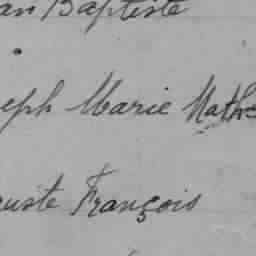 an Baptiste
eph Marie Math
uste François